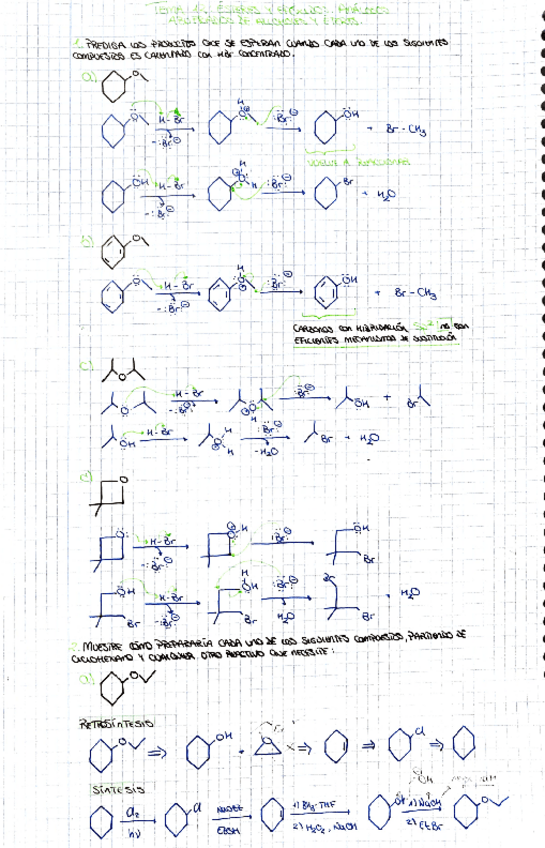 TEMA 12. ÉTERES Y EPÓXIDOS. ANÁLOGOS
AZUFRADOS DE ALCOHOLES Y ÉTERES.
1. PREDIGA LOS PRODUCTOS QUE SE ESPERAN CUANDO CADA UNO DE LOS SIGUIENTES
COMPUESTOS ES CALENTADO CON HBr CONCENTRADO.
a)
H-Br
Br - CH3
VUELVE A REACCIONAR
H-Br
Br + H2O
b)
H-Br
OH + Br - CH3
CARBONOS CON HIBRIDACIÓN Sp2 no son
EFICIENTES MECANISMOS DE SUSTITUCIÓN
c)
H-Br
OH + Br
H-Br
-H2O
Br + H2O
d)
H-Br
OH
Br
H-Br
H2O
Br
+ H2O
2. MUESTRE CÓMO PREPARARÍA CADA UNO DE LOS SIGUIENTES COMPUESTOS, PARTIENDO DE
CICLOHEXANO Y CUALQUIER OTRO REACTIVO QUE NECESITE:
a)
RETROSÍNTESIS
OH + Cl
SÍNTESIS
Cl2
hν
Cl
NaOEt
EtOH
1) BH3·THF
2) H2O2, NaOH
OH
1) NaOH
2) EtBr